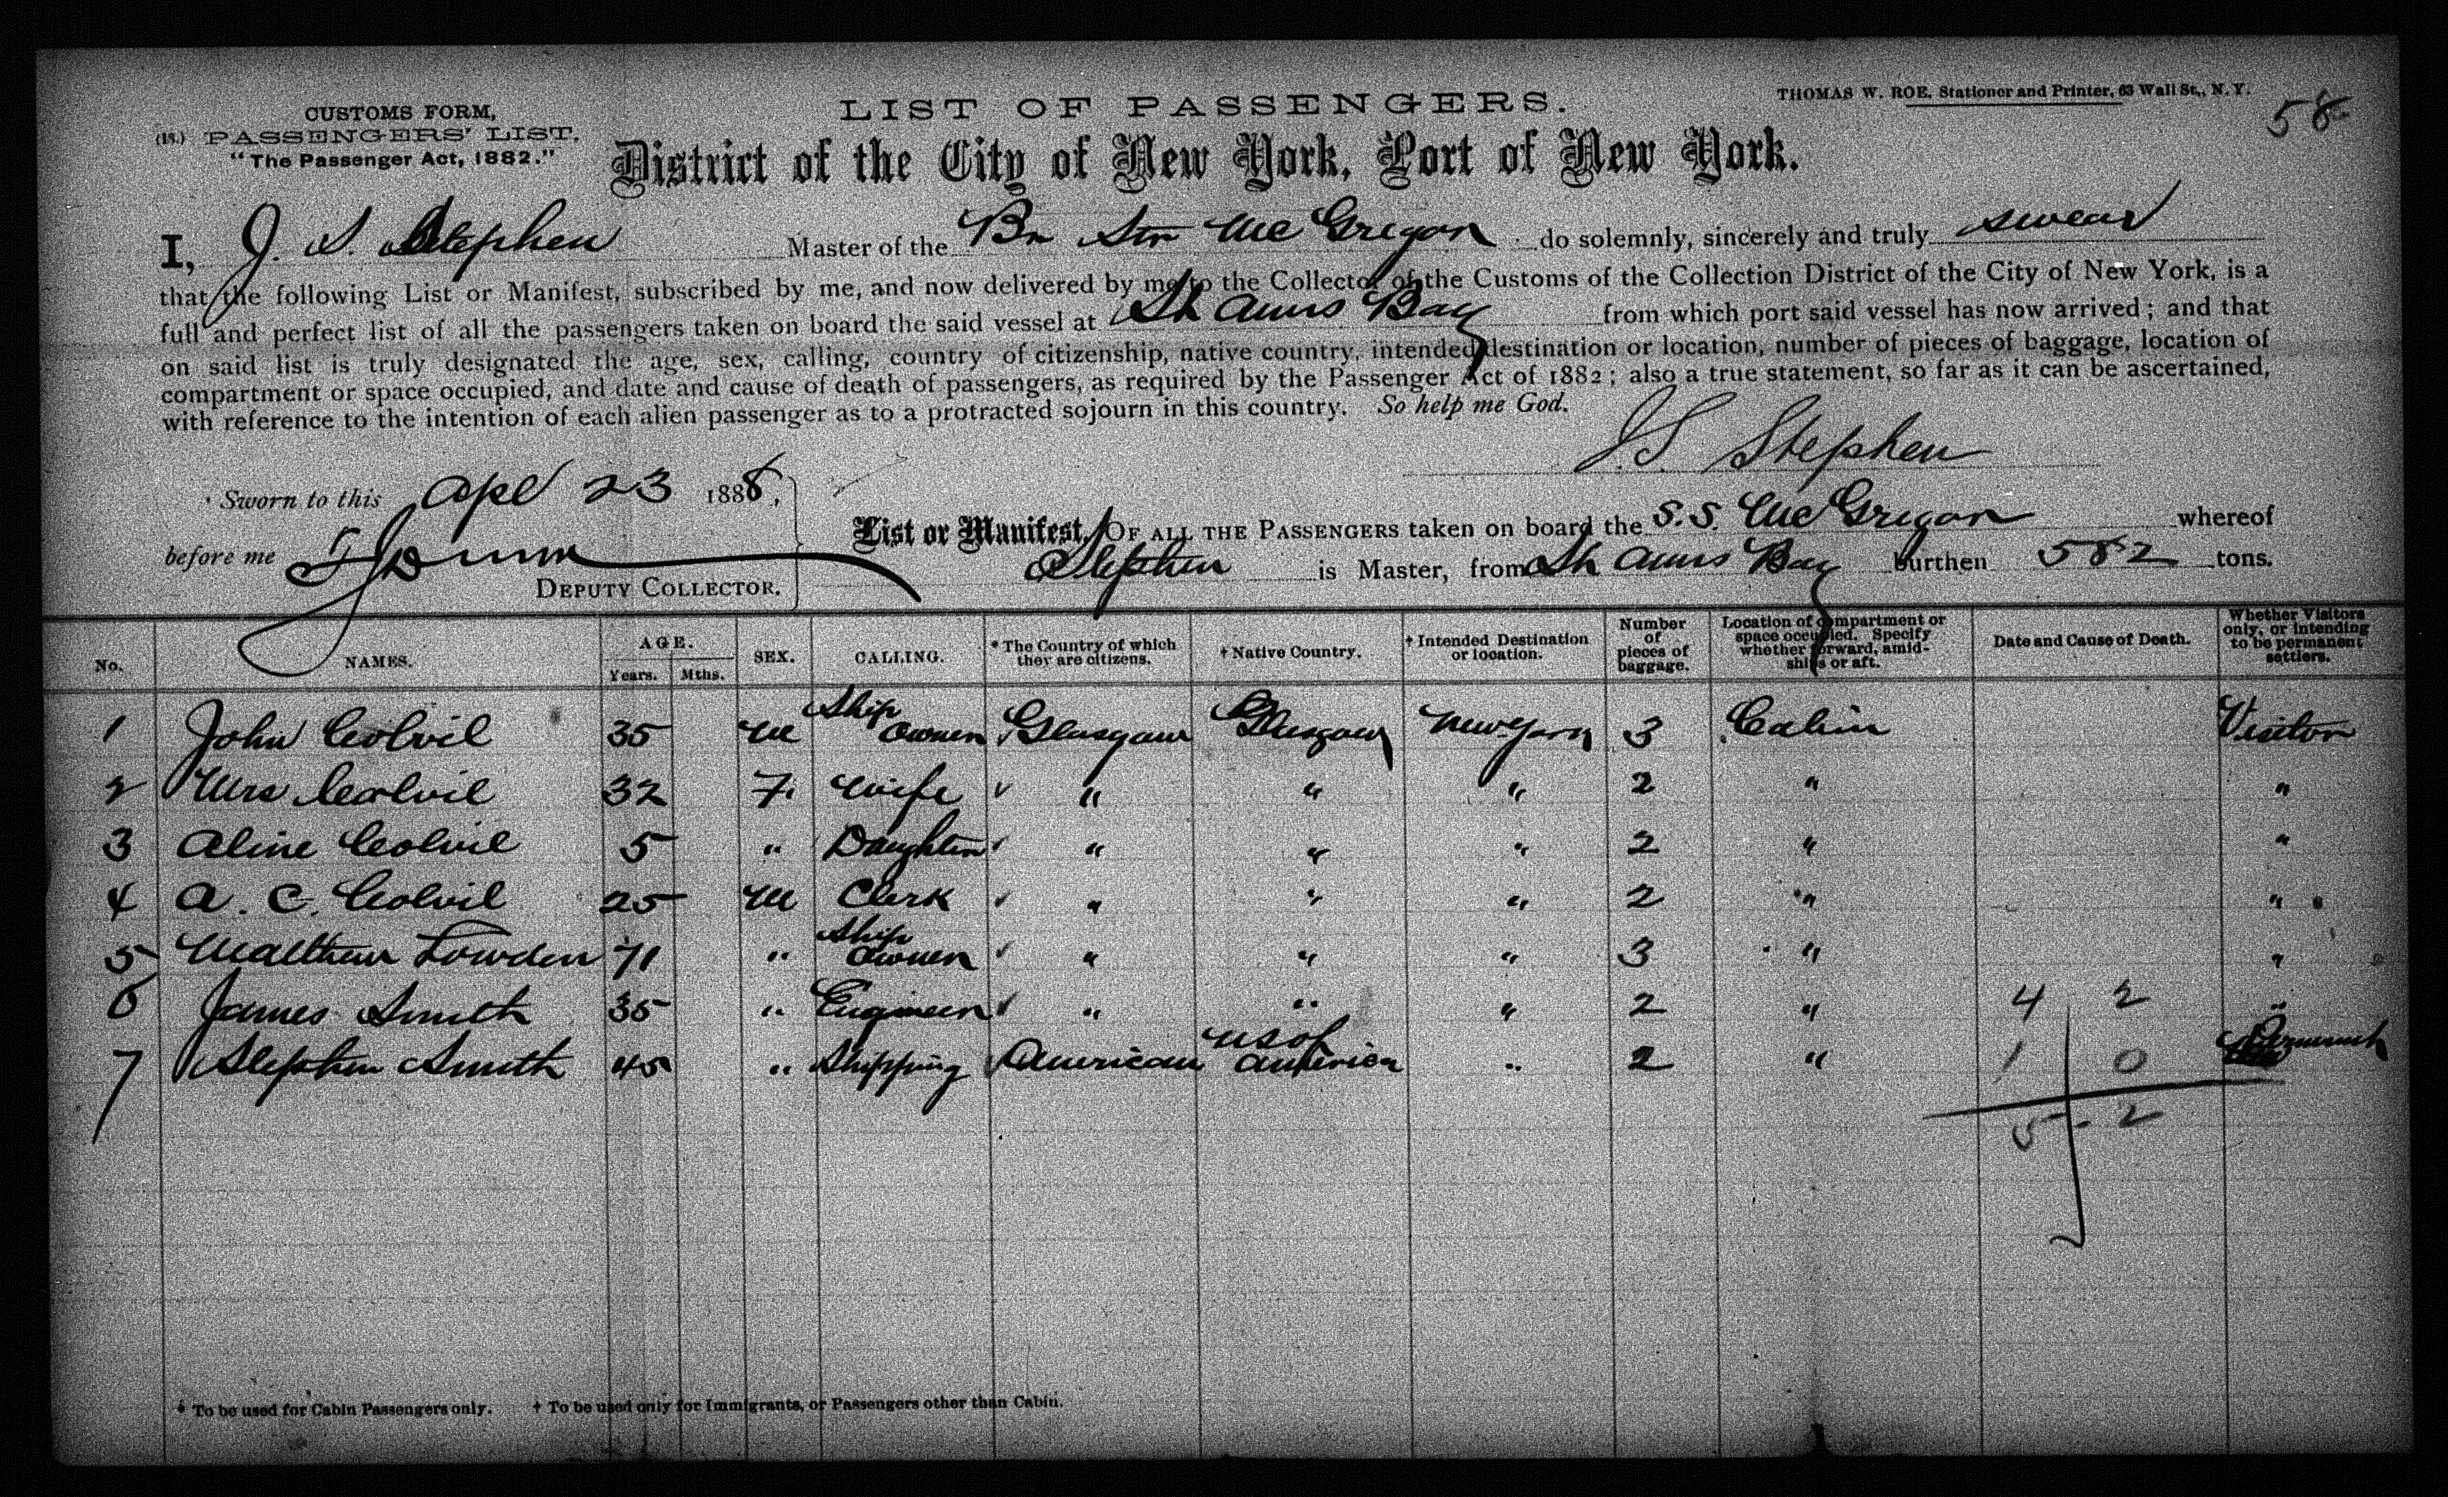 CUSTOMS FORM,
(18.) PASSENGERS' LIST.
"The Passenger Act, 1882."
LIST OF PASSENGERS.
THOMAS W. ROE, Stationer and Printer, 63 Wall St., N. Y.
58
District of the City of New York, Port of New York.
I, J. S. Stephen Master of the Br Str Mc Gregor do solemnly, sincerely and truly swear
that the following List or Manifest, subscribed by me, and now delivered by me to the Collector of the Customs of the Collection District of the City of New York, is a
full and perfect list of all the passengers taken on board the said vessel at St Anns Bay from which port said vessel has now arrived; and that
on said list is truly designated the age, sex, calling, country of citizenship, native country, intended destination or location, number of pieces of baggage, location of
compartment or space occupied, and date and cause of death of passengers, as required by the Passenger Act of 1882; also a true statement, so far as it can be ascertained,
with reference to the intention of each alien passenger as to a protracted sojourn in this country. So help me God.
J S Stephen
Sworn to this Apl 23 1888,
before me
DEPUTY COLLECTOR.
List or Manifest, OF ALL THE PASSENGERS taken on board the S.S. Mc Gregor whereof
Stephen is Master, from St Anns Bay burthen 582 tons.
No. NAMES. AGE. Years. Mths. SEX. CALLING. * The Country of which they are citizens. † Native Country. † Intended Destination or location. Number of pieces of baggage. Location of compartment or space occupied. Specify whether forward, amidships or aft. Date and Cause of Death. Whether Visitors only, or intending to be permanent settlers.
1 John Colvil 35 M Ship owner Glasgow Glasgow New York 3 Cabin Visitor
2 Mrs Colvil 32 F. Wife " " " 2 " "
3 Aline Colvil 5 " Daughter " " " 2 " "
4 A. C. Colvil 25 M Clerk " " " 2 " "
5 Matthew Lowden 71 " Ship owner " " " 3 " "
6 James Smith 35 " Engineer " " " 2 " "
7 Stephen Smith 45 " Shipping American US of America " 2 "
4 2
1 0
5 - 2
* To be used for Cabin Passengers only. † To be used only for Immigrants, or Passengers other than Cabin.